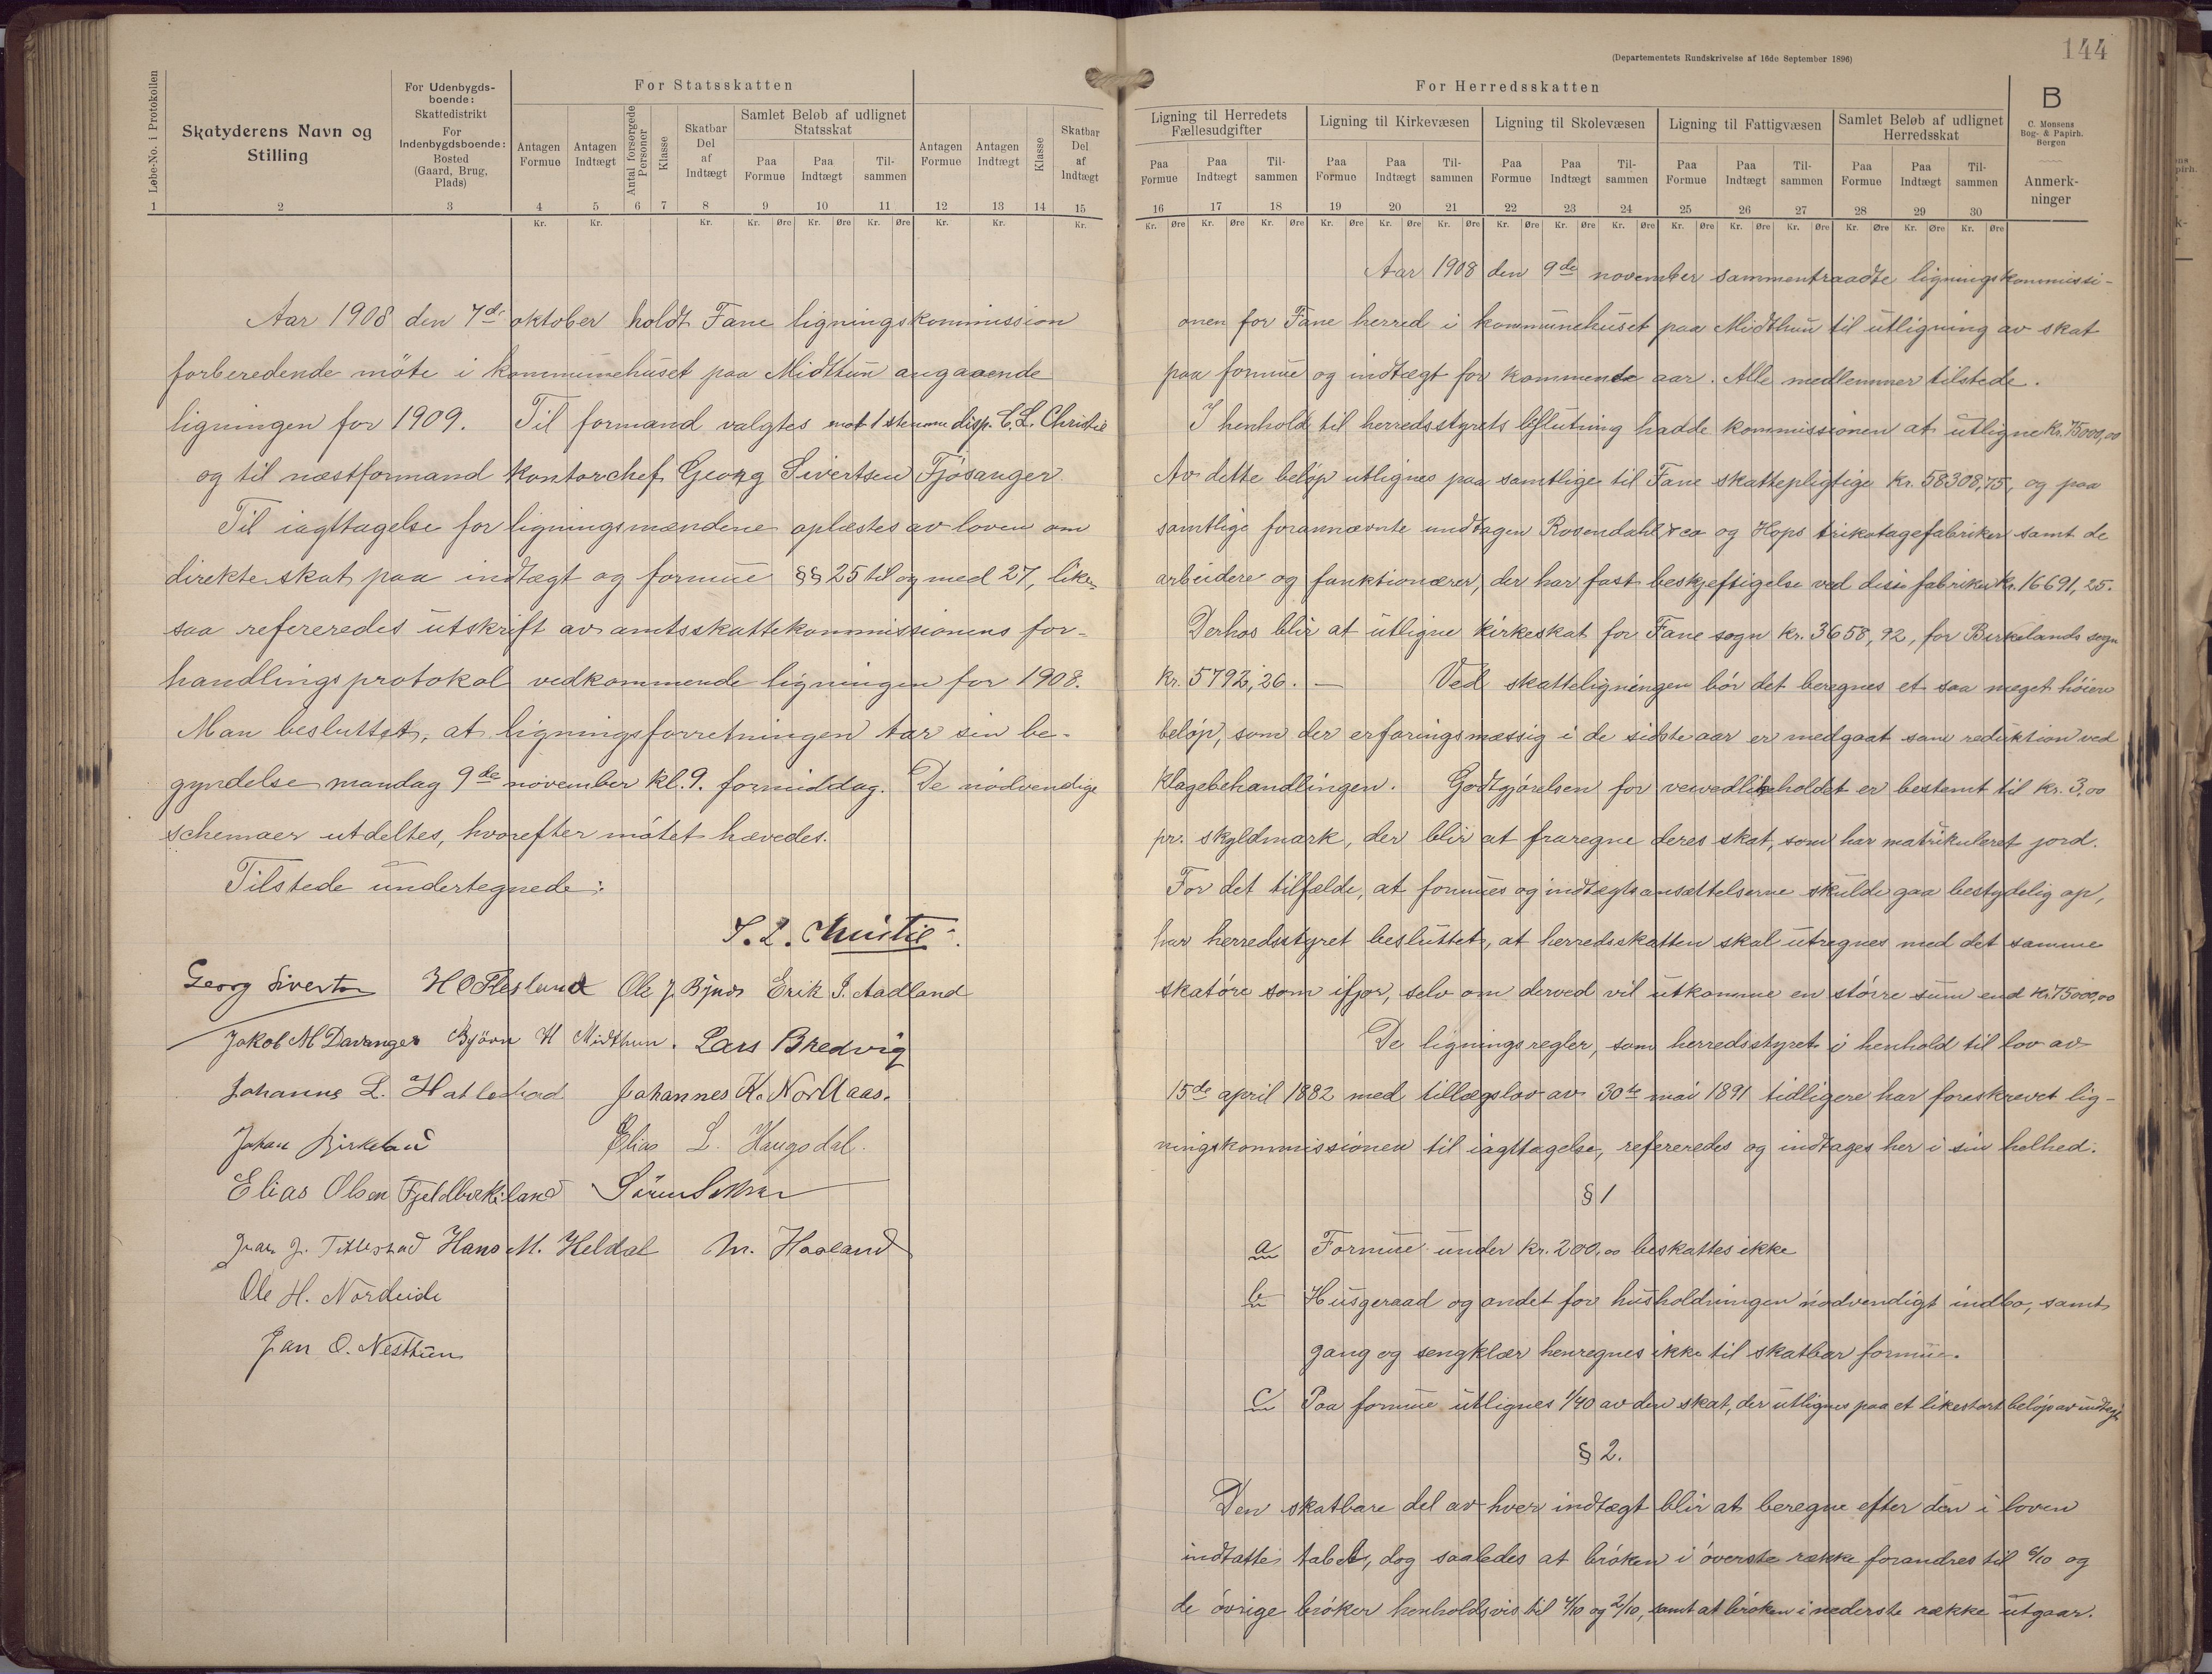 For Statsskatten
Løbe-No. i Protokollen
Skatyderens Navn og Stilling
For Udenbygds-boende: Skattedistrikt
For Indenbygdsboende: Bosted (Gaard, Brug, Plads)
Antagen Formue
Antagen Indtægt
Antal forsørgede Personer
Klasse
Skatbar Del af Indtægt
Samlet Beløb af udlignet Statsskat
Paa Formue
Paa Indtægt
Til-sammen
Antagen Formue
Antagen Indtægt
Klasse
Skatbar Del af Indtægt
1 2 3 4 5 6 7 8 9 10 11 12 13 14 15
Kr. Kr. Kr. Kr. Øre Kr. Øre Kr. Øre Kr. Kr. Kr.
Aar 1908 den 7de oktober holdt Fane ligningskommission
forberedende möte i kommunehuset paa Midttun angaaende
ligningen for 1909. Til formand valgtes mot 1 stemme disp. C. L. Christie
og til næstformand kontorchef Georg Sivertsen Fjösanger
Til iagttagelse for ligningsmændene oplæstes av loven om
direkte skat paa indtægt og formue §§ 25 til og med 27, like-
saa refereredes utskrift av amtsskattekommissionens for-
handlingsprotokol vedkommende ligningen for 1908.
Man besluttet, at ligningsforretningen tar sin be-
gyndelse mandag 9de november kl. 9. formiddag. De nödvendige
schemaer utdeltes, hvorefter mötet hævedes.
Tilstede undertegnede:
S. L. Christie
Georg Sivertsen H O Flesland Ole J. Bjnds Erik I. Aadland
Jakob M Davanger Björn H Midthun. Lars Bredvig
Johannes L. Hatlestad Johannes K. Nordaas.
Johan Birkeland Elias L. Haugsdal.
Elias Olsen Fjeldbirkeland
J. Titlestad Hans M. Heldal M. Haaland
Ole H. Nordeide
Jan O. Nesttun
144
(Departementets Rundskrivelse af 16de September 1896)
For Herredsskatten
B
C. Monsens Bog- & Papirh. Bergen
Ligning til Herredets Fællesudgifter
Ligning til Kirkevæsen
Ligning til Skolevæsen
Ligning til Fattigvæsen
Samlet Beløb af udlignet Herredsskat
Paa Formue Paa Indtægt Til-sammen Paa Formue Paa Indtægt Til-sammen Paa Formue Paa Indtægt Til-sammen Paa Formue Paa Indtægt Til-sammen Paa Formue Paa Indtægt Til-sammen
Anmerk-ninger
16 17 18 19 20 21 22 23 24 25 26 27 28 29 30
Kr. Øre Kr. Øre Kr. Øre Kr. Øre Kr. Øre Kr. Øre Kr. Øre Kr. Øre Kr. Øre Kr. Øre Kr. Øre Kr. Øre Kr. Øre Kr. Øre Kr. Øre
Aar 1908 den 9de november sammentraadte ligningskommissi-
onen for Fane herred i kommunehuset paa Midthun til utligning av skat
paa formue og indtægt for kommende aar. Alle medlemmer tilstede.
I henhold til herredsstyrets beslutning hadde kommissionen at utligne kr. 75000,00
Av dette beløp utlignes paa samtlige til Fane skattepligtige kr. 58308,75, og paa
samtlige forannævnte undtagen Rosendahl & co og Hops trikotagefabriker samt de
arbeidere og funktionærer, der har fast beskjeftigelse ved disse fabriker kr. 16691,25.
Derhos blir at utligne kirkeskat for Fane sogn kr. 3658,92, for Birkelands sogn
kr. 5792,26. — Ved skatteligningen bör det beregnes et saa meget höiere
belöp, som der erfaringsmæssig i de sidste aar er medgaat som reduktion ved
klagebehandlingen. Godtgjörelsen for veivedlikeholdet er bestemt til kr. 3,00
pr. skyldmark, der blir at fraregne deres skat, som har matrikuleret jord.
For det tilfælde, at formues og indtægtsansættelserne skulde gaa betydelig op,
har herredsstyret besluttet, at herredsskatten skal utregnes med det samme
skatöre som ifjor, selv om derved vil utkomme en större sum end kr. 75000,00
De ligningsregler, som herredsstyret i henhold til lov av
15de april 1882 med tillægslov av 30te mai 1891 tidligere har foreskrevet lig-
ningskommissionen til iagttagelse, refereredes og indtages her i sin helhed.
§ 1
a Formue under kr. 200,00 beskattes ikke
b Husgeraad og andet for husholdningen nödvendigt indbo, samt
gang og sengklær henregnes ikke til skatbar formue.
c Paa formue utlignes 1/40 av den skat, der utlignes paa et likestort belöp av indtægt
§ 2.
Den skatbare del av hver indtægt blir at beregne efter den i loven
indtatte tabel, dog saaledes at bröken i överste række forandres til 6/10 og
de övrige bröker henholdsvis til 4/10 og 2/10, samt at bröken i nederste række utgaar.